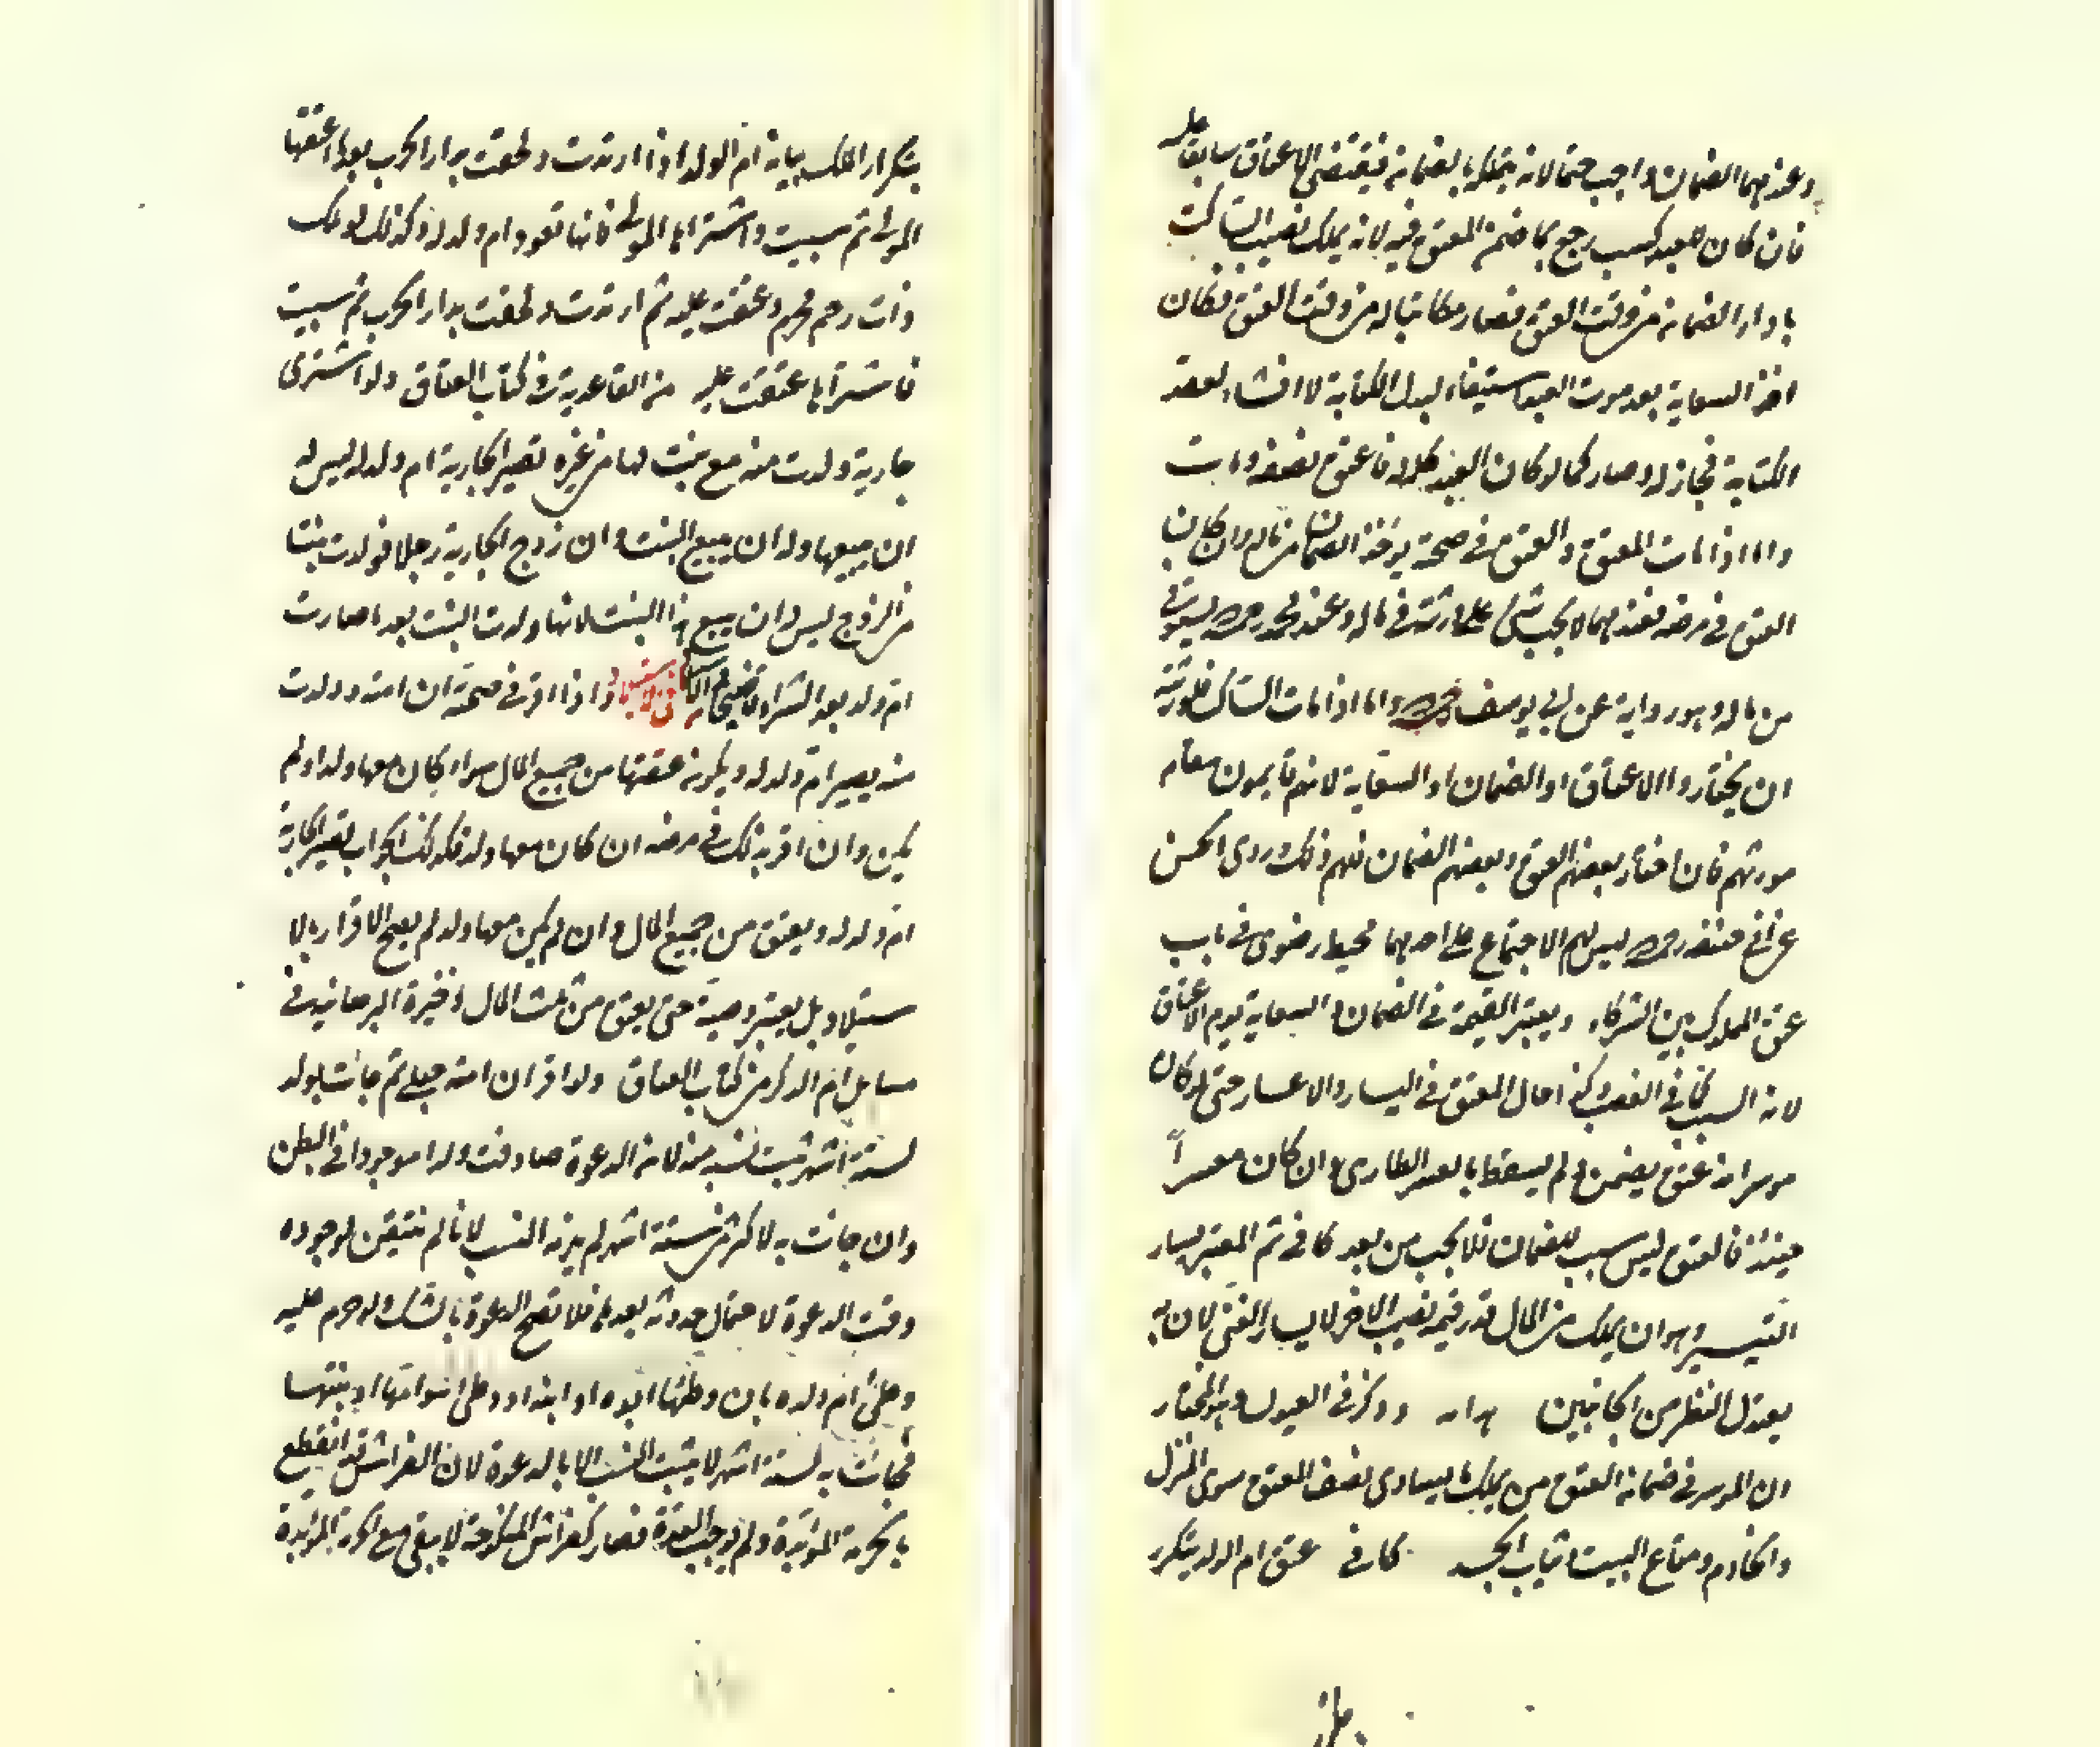 وعندهما الضمان واجب حتما لانه يتملكه بالضمان فيقتضي الاعتاق سابقا عليه
فان كان للعبد كسب رجع بما ضمن المعتق فيه لانه يملك نصيب الساكت
باداء الضمان من وقت العتق فصار مكاتبا له من وقت العتق فكان
اخذ السعاية بعد موت العبد استيفاء لبدل الكتابة لا انشاء لعقد
الكتابة فجاز له وصار كما لو كان العبد كله له فاعتق نصفه ومات
واما اذا مات المعتق والعتق في صحته يؤخذ الضمان من ماله وان كان
العتق في مرضه فعندهما لا يجب شئ على ورثته في ماله وعند محمد رحمه الله يستوفى
من ماله وهو رواية عن ابي يوسف رحمه الله واما اذا مات الساكت فلورثته
ان يختاروا الاعتاق او الضمان او السعاية لانهم قايمون مقام
مورثهم فان اختار بعضهم العتق وبعضهم الضمان فلهم ذلك وروى الحسن
عن ابي حنيفة رحمه الله ليس لهم الا اجتماع على احدهما محيط رضوي في باب
عتق المملوك بين الشركاء ويعتبر القيمة في الضمان والسعاية يوم الاعتاق
لانه السبب كما في الغصب وكذا حال المعتق في اليسار والاعسار حتى لو كان
موسرا منذ عتق يضمن ولم يسقط بالعسر الطارى وان كان معسرا
حينئذ فالعتق ليس سبب للضمان فلا يجب من بعد كافي ثم المعتبر يسار
التيسير وهو ان يملك من المال قدر قيمة نصيب الاخر لا يسار الغنى لان به
يعتدل النظر من الجانبين هدايه وذكر في العيون وهو المختار
ان الموسر في ضمان العتق من يملك ما يساوي نصف المعتق سوى المنزل
والخادم ومتاع البيت وثياب الجسد كافي عتق ام الولد يتكرر
بتكرار الملك بيانه ام الولد اذا ارتدت ولحقت بدار الحرب بعد ما اعتقها
المولى ثم سبيت واشتراها المولى فانها تعود ام ولد له وكذلك لو ملك
ذات رحم محرم وعتقت عليه ثم ارتدت ولحقت بدار الحرب ثم سبيت
فاشتراها عتقت عليه من القاعدية في كتاب العتاق ولو اشترى
جارية ولدت منه مع بنت لها من غيره تصير الجارية ام ولد له ليس له
ان يبيعها وله ان يبيع البنت وان زوج الجارية رجلا فولدت بنتا
من الزوج ليس له ان يبيع هذا البنت لانها ولدت البنت بعد ما صارت
ام ولد بعد الشراء واذا اقر في صحته ان امته ولدت
منه يصير ام ولد له ويكون عتقها من جميع المال سواء كان معها ولد او لم
يكن وان اقر بذلك في مرضه ان كان معها ولد فكذلك الجواب تصير الجارية
ام ولد له ويعتق من جميع المال وان لم يكن معها ولد لم يصح الاقرار بالا
ستيلاد بل يعتبر وصية حتى يعتق من ثلث المال ذخيرة البرهانية في
مسايل ام الولد من كتاب العتاق ولو اقر ان امته حبلى ثم جائت بولد
لستة اشهر ثبت نسبه منه لان الدعوة صادفت ولدا موجودا في البطن
وان جائت به لاكثر من ستة اشهر لم يلزمه النسب لانا لم نتيقن لوجوده
وقت الدعوة لاحتمال حدوثه بعدها فلا تصح الدعوة بالشك ولو حرم عليه
وطئ ام ولده بان وطئها ابوه او ابنه او وطئ هو امها او بنتها
فجائت به لستة اشهر لا يثبت النسب الا بالدعوة لان الفراش قد انقطع
بالحرمة المؤبدة ولم يوجب العدة فصار كفراش المنكوحة لا يبقى مع الحرمة المؤبدة